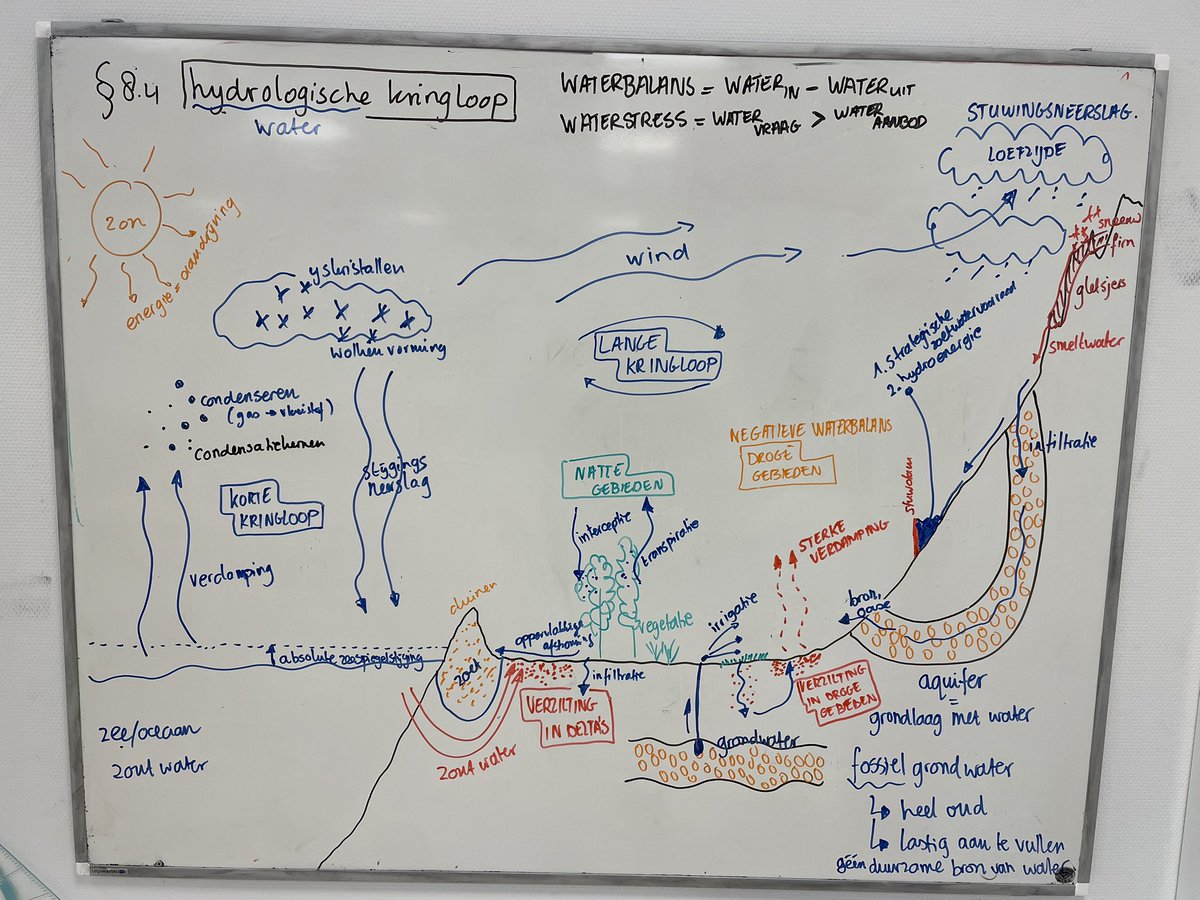 § 8.4 hydrologische kringloop
water
WATERBALANS = WATER IN - WATER UIT
WATERSTRESS = WATER VRAAG > WATER AANBOD
1
STUWINGSNEERSLAG.
LOEFZIJDE
zon
energie = aandrijving
ijskristallen
wolkenvorming
condenseren
(gas → vloeistof)
condensatiekernen
KORTE
KRINGLOOP
verdamping
stijgings
neerslag
wind
LANGE
KRINGLOOP
sneeuw
firn
gletsjers
smeltwater
1. strategische
zoetwatervoorraad
2. hydroenergie
NEGATIEVE WATERBALANS
DROGE
GEBIEDEN
NATTE
GEBIEDEN
interceptie
transpiratie
STERKE
VERDAMPING
stuwdam
infiltratie
duinen
oppervlakkige
afstroming
vegetatie
irrigatie
bron,
oase
absolute zeespiegelstijging
zoet
infiltratie
VERZILTING
IN DELTA'S
VERZILTING
IN DROGE
GEBIEDEN
zee/oceaan
zout water
zout water
grondwater
aquifer
=
grondlaag met water
fossiel grondwater
↳ heel oud
↳ lastig aan te vullen
géén duurzame bron van water
Legamaster